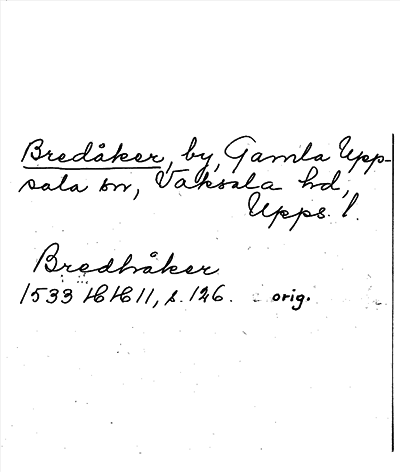 Bredåker, by, Gamla Upp-
sala sn, Vaksala hd,
Upps. l.
Bredhåker
1533 HH 11, s. 126. orig.